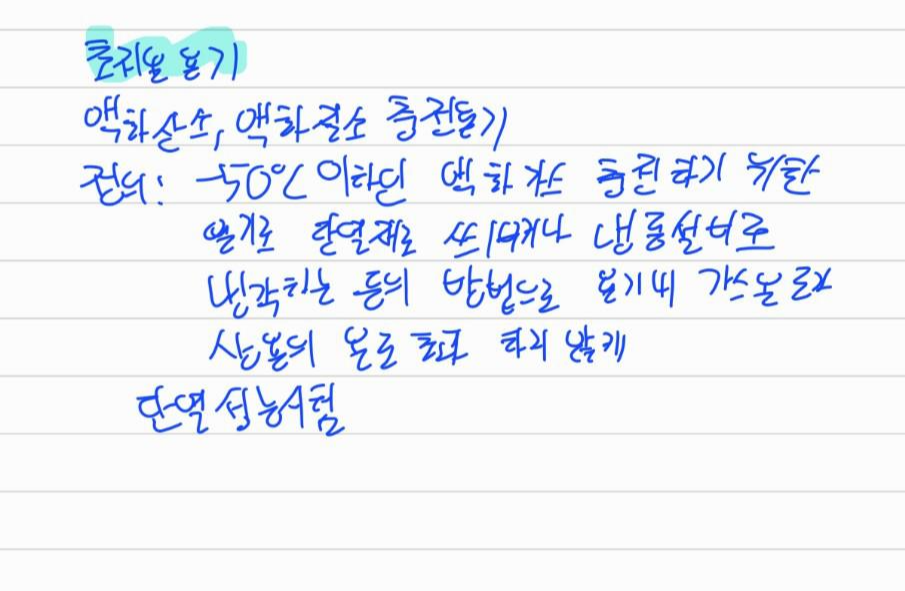 초저온 용기
액화산소, 액화질소 충전용기
정의: -50℃ 이하인 액화가스 충전하기 위한
용기로 단열재로 쓰시거나 냉동설비로
냉각하는 등의 방법으로 용기내 가스온도가
상용의 온도 초과 하지 않게
단열성능시험